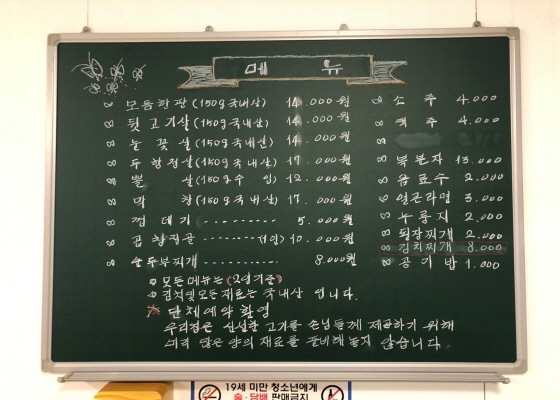 메 뉴
모듬한판 (150g 국내산) 14.000원
뒷고기살 (150g 국내산) 14.000원
눈꽃살 (150g 국내산) 14.000원
두항정살 (150g 국내산) 17.000원
뽈살 (150g 수입) 12.000원
막창 (150g 국내산) 17.000원
껍데기 ---------- 5.000원
곱창전골 -------- (1인) 10.000원
순두부찌개 8.000원
소주 4.000
맥주 4.000
복분자 13.000
음료수 2.000
얼큰라면 3.000
누룽지 2.000
된장찌개 2.000
김치찌개 8.000
공기밥 1.000
모든메뉴는 (2인기준)
김치및모든재료는 국내산 입니다.
단체예약 환영
우리점은 신선한 고기를 손님들께 제공하기 위해
미리 많은 양의 재료를 준비해놓지 않습니다
19세 미만 청소년에게
술·담배 판매금지